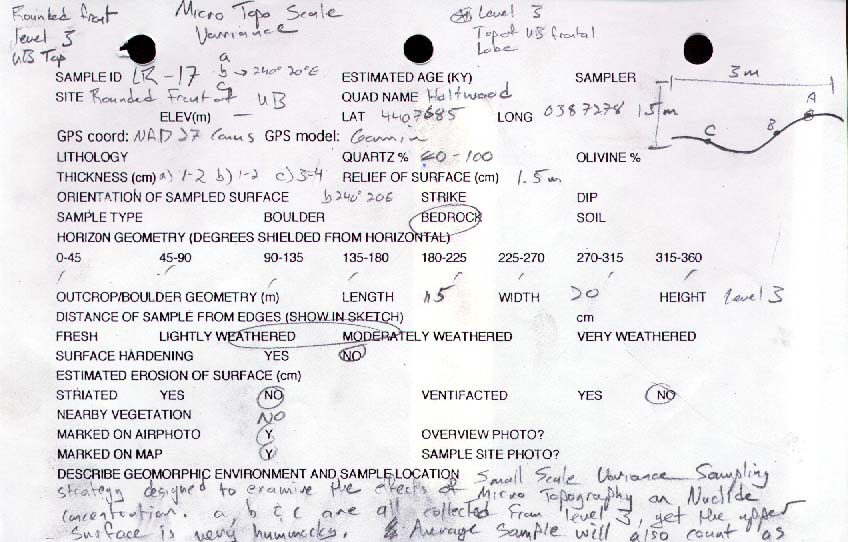 Rounded front
level 3
UB Top
Micro Topo Scale
Variance
Level 3
Top of UB frontal
Lobe
a
SAMPLE ID LR-17 b → 240° 20°E ESTIMATED AGE (KY) SAMPLER
c
3 m
SITE Rounded Front of UB QUAD NAME Holtwood
A
ELEV(m) — LAT 4407685 LONG 0387278
1.5 m
C B
GPS coord: NAD 27 Conus GPS model: Garmin
LITHOLOGY QUARTZ % 60-100 OLIVINE %
THICKNESS (cm) a) 1-2 b) 1-2 c) 3-4 RELIEF OF SURFACE (cm) 1.5 m
ORIENTATION OF SAMPLED SURFACE b 240° 20E STRIKE DIP
SAMPLE TYPE BOULDER BEDROCK SOIL
HORIZON GEOMETRY (DEGREES SHIELDED FROM HORIZONTAL)
0-45 45-90 90-135 135-180 180-225 225-270 270-315 315-360
OUTCROP/BOULDER GEOMETRY (m) LENGTH 15 WIDTH 20 HEIGHT level 3
DISTANCE OF SAMPLE FROM EDGES (SHOW IN SKETCH) cm
FRESH LIGHTLY WEATHERED MODERATELY WEATHERED VERY WEATHERED
SURFACE HARDENING YES NO
ESTIMATED EROSION OF SURFACE (cm)
STRIATED YES NO VENTIFACTED YES NO
NEARBY VEGETATION NO
MARKED ON AIRPHOTO Y OVERVIEW PHOTO?
MARKED ON MAP Y SAMPLE SITE PHOTO?
DESCRIBE GEOMORPHIC ENVIRONMENT AND SAMPLE LOCATION Small Scale Variance Sampling
strategy designed to examine the effects of Micro Topography on Nuclide
concentration. a, b & c are all collected from level 3, yet the upper
surface is very hummocky. Average sample will also count as